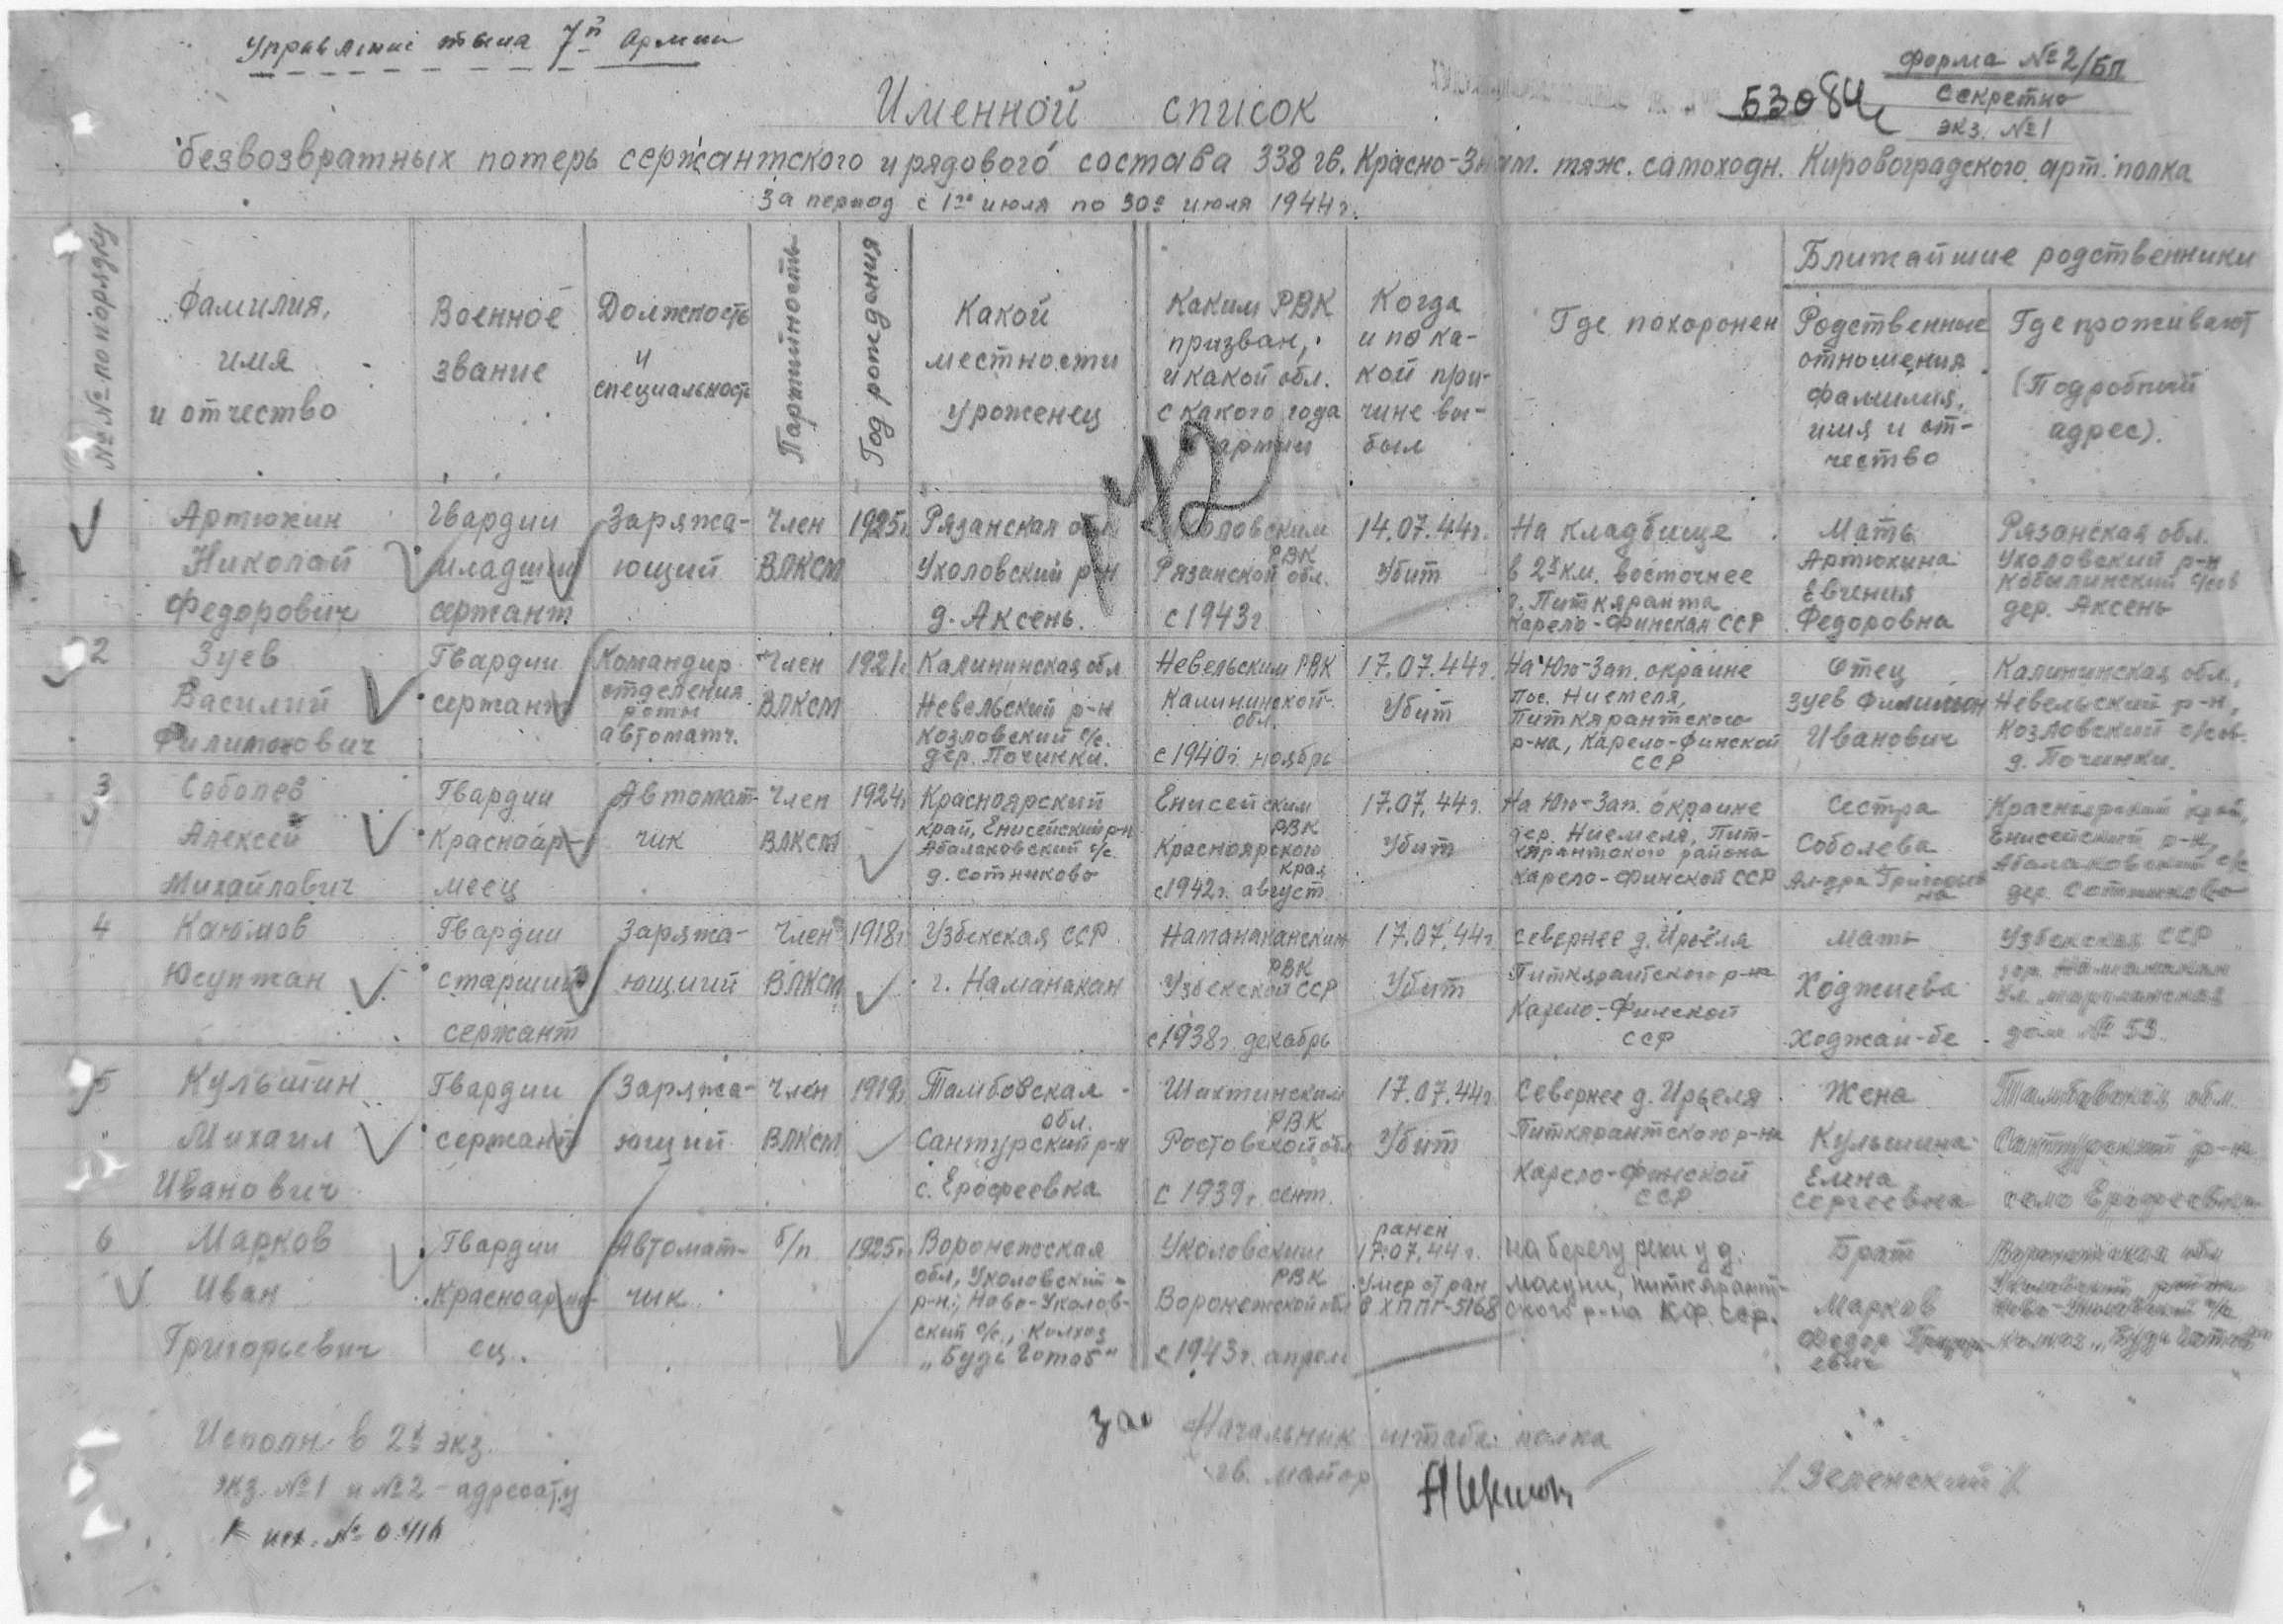 Управление тыла 7й Армии
Форма №2/БП
Секретно
экз. №1
Именной список
безвозвратных потерь сержантского и рядового состава 338 гв. Красно-Знам. тяж. самоходн. Кировоградского арт. полка
За период с 1го июля по 30е июля 1944г.
№№ по порядку
Фамилия,
имя
и отчество
Военное
звание
Должность
и
специальность
Партийность
Год рождения
Какой
местности
уроженец
Каким РВК
призван,
и какой обл.
с какого года
в армии
Когда
и по ка-
кой при-
чине вы-
был
Где похоронен
Ближайшие родственники
Родственные
отношения
фамилия,
имя и от-
чество
Где проживают
(Подробный
адрес).
42
Артюхин
Николай
Федорович
Гвардии
младший
сержант
Заряжа-
ющий
Член
ВЛКСМ
1925г
Рязанская обл
Ухоловский р-н
д. Аксень.
Ухоловским
РВК
Рязанской обл.
с 1943г
14.07.44г.
Убит
На кладбище
в 2х км. восточнее
г. Питкяранта
Карело-Финская ССР
Мать
Артюхина
Евгения
Федоровна
Рязанская обл.
Ухоловский р-н
Кобылинский с/сов
дер. Аксень
2
Зуев
Василий
Филимонович
Гвардии
сержант
Командир
отделения
роты
автоматч.
Член
ВЛКСМ
1921г
Калининская обл
Невельский р-н
Козловский с/с.
дер. Починки.
Невельским РВК
Калининской
обл.
с 1940г. ноябрь
17.07.44г.
Убит
На Юго-Зап. окраине
пос. Ниемеля,
Питкярантского
р-на, Карело-Финской
ССР
Отец
Зуев Филимон
Иванович
Калининская обл.,
Невельский р-н,
Козловский с/сов.
д. Починки.
3
Соболев
Алексей
Михайлович
Гвардии
Красноар-
меец
Автомат-
чик
Член
ВЛКСМ
1924г
Красноярский
край, Енисейский р-н
Абалаковский с/с
д. Сотниково
Енисейским
РВК
Красноярского
края
с 1942г. август
17.07.44г.
Убит
На Юго-Зап. окраине
дер. Ниемеля, Пит-
кярантского района
Карело-Финской ССР
Сестра
Соболева
Ал-дра Григорьев
на
Красноярский край,
Енисейский р-н,
Абалаковский с/с
дер. Сотниково
4
Каюмов
Юсупжан
Гвардии
старший
сержант
Заряжа-
ющий
Член
ВЛКСМ
1918г
Узбекская ССР
г. Наманакан
Наманаканским
РВК
Узбекской ССР
с 1938г. декабрь
17.07.44г
Убит
Севернее д. Ирьеля
Питкярантского р-на
Карело-Финской
ССР
Мать
Ходжиева
Ходжаи-бе
Узбекская ССР
гор. Наманакан
дом № 53.
5
Кульшин
Михаил
Иванович
Гвардии
сержант
Заряжа-
ющий
Член
ВЛКСМ
1919г
Тамбовская
обл.
Сантурский р-н
с. Ерофеевка
Шахтинским
РВК
Ростовской обл
с 1939г. сент.
17.07.44г
Убит
Севернее д. Ирьеля
Питкярантского р-на
Карело-Финской
ССР
Жена
Кульшина
Елена
Сергеевна
Тамбовская обл.
Сантурский р-н
село Ерофеевка
6
Марков
Иван
Григорьевич
Гвардии
Красноарме-
ец.
Автомат-
чик
б/п
1925г
Воронежская
обл, Уколовский
р-н, Ново-Уколов-
ский с/с, Колхоз
„Будь Готов“
Уколовским
РВК
Воронежской обл
с 1943г. апрель
ранен
17.07.44г.
Умер от ран
в ХППГ-5168
на берегу реки у д.
Питкярант-
ского р-на К.Ф. ССР.
Брат
Марков
Федор Григорь
евич
Воронежская обл
Уколовский район
Ново-Уколовский с/с
колхоз „Будь Готов“
Исполн. в 2х экз.
экз. №1 и №2 - адресату
К исх. №
За
Начальник штаба полка
гв. майор
/Зеленский/